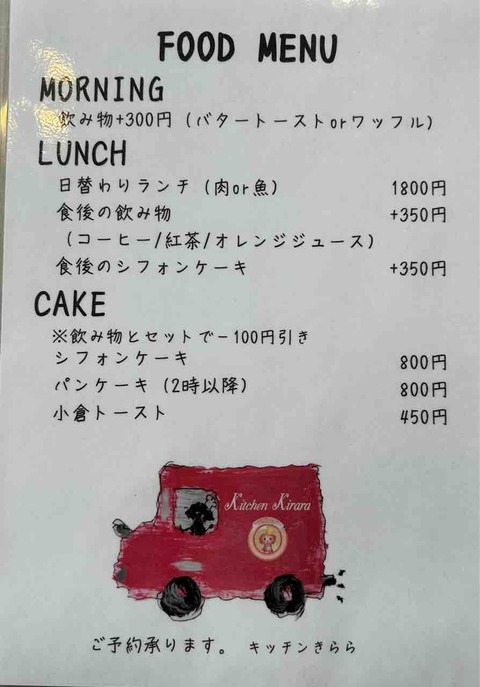 FOOD MENU
MORNING
飲み物+300円 (バタートーストorワッフル)
LUNCH
日替わりランチ (肉or魚) 1800円
食後の飲み物 +350円
(コーヒー/紅茶/オレンジジュース)
食後のシフォンケーキ +350円
CAKE
※飲み物とセットで-100円引き
シフォンケーキ 800円
パンケーキ (2時以降) 800円
小倉トースト 450円
Kitchen Kirara
ご予約承ります。 キッチンきらら